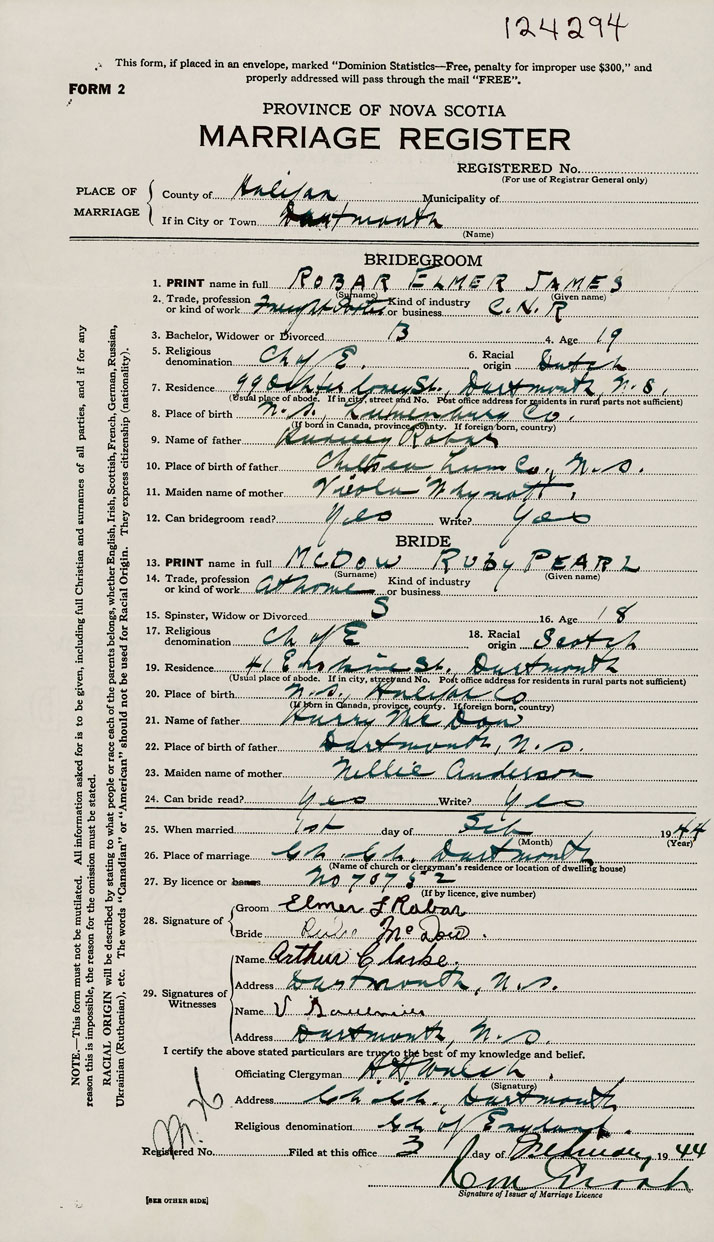 124294
This form, if placed in an envelope, marked "Dominion Statistics—Free, penalty for improper use $300," and
properly addressed will pass through the mail "FREE".
FORM 2
PROVINCE OF NOVA SCOTIA
MARRIAGE REGISTER
REGISTERED No.
(For use of Registrar General only)
PLACE OF MARRIAGE
County of Halifax Municipality of
If in City or Town Dartmouth
(Name)
BRIDEGROOM
1. PRINT name in full ROBAR ELMER JAMES
(Surname) (Given name)
2. Trade, profession or kind of work Freight Porter Kind of industry or business C.N.R
3. Bachelor, Widower or Divorced B 4. Age 19
5. Religious denomination Ch of E. 6. Racial origin Dutch
7. Residence St., Dartmouth, N.S.
(Usual place of abode. If in city, street and No. Post office address for residents in rural parts not sufficient)
8. Place of birth N.S., Lunenburg Co.
(If born in Canada, province, county. If foreign born, country)
9. Name of father Robar
10. Place of birth of father Chelsea Lun Co., N.S.
11. Maiden name of mother Viola Whynott
12. Can bridegroom read? Yes Write? Yes
BRIDE
13. PRINT name in full McDOW RUBY PEARL
(Surname) (Given name)
14. Trade, profession or kind of work At home Kind of industry or business
15. Spinster, Widow or Divorced S 16. Age 18
17. Religious denomination Ch of E 18. Racial origin Scotch
19. Residence 41 Erskine St., Dartmouth
(Usual place of abode. If in city, street and No. Post office address for residents in rural parts not sufficient)
20. Place of birth N.S., Halifax Co
(If born in Canada, province, county. If foreign born, country)
21. Name of father Harry McDow
22. Place of birth of father Dartmouth, N.S.
23. Maiden name of mother Nellie Anderson
24. Can bride read? Yes Write? Yes
25. When married 1st day of Feb 1944
(Month) (Year)
26. Place of marriage Ch Ch. Dartmouth
(Name of church or clergyman's residence or location of dwelling house)
27. By licence or banns No 70752
(If by licence, give number)
28. Signature of
Groom Elmer J Robar
Bride McDow.
29. Signatures of Witnesses
Name Arthur Clarke.
Address Dartmouth, N.S.
Name V
Address Dartmouth, N.S.
I certify the above stated particulars are true to the best of my knowledge and belief.
Officiating Clergyman Walsh.
(Signature)
Address Ch Ch., Dartmouth
Religious denomination Ch of England.
Registered No. Filed at this office 3 day of February 1944
Signature of Issuer of Marriage Licence
[SEE OTHER SIDE]
NOTE.—This form must not be mutilated. All information asked for is to be given, including full Christian and surnames of all parties, and if for any
reason this is impossible, the reason for the omission must be stated.
RACIAL ORIGIN will be described by stating to what people or race each of the parents belongs, whether English, Irish, Scottish, French, German, Russian,
Ukrainian (Ruthenian), etc. The words "Canadian" or "American" should not be used for Racial Origin. They express citizenship (nationality).